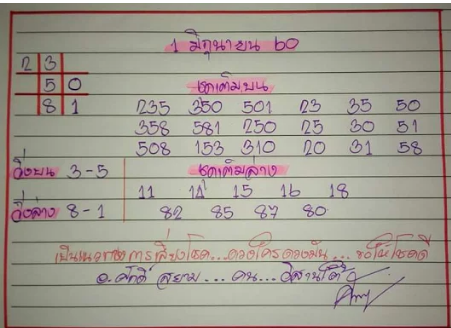 1 มิถุนายน 60
2 3
5 0
8 1
ชุดเต็มบน
235 350 501 23 35 50
358 581 250 25 30 51
508 153 310 20 31 58
วิ่งบน 3-5
ชุดเต็มล่าง
11 14 15 16 18
วิ่งล่าง 8-1
82 85 87 80
เป็นแนวทางการเสี่ยงโชค...ดวงใครดวงมัน...ขอให้โชคดี
อ.ศักดิ์ สยาม...คน...อีสานใต้